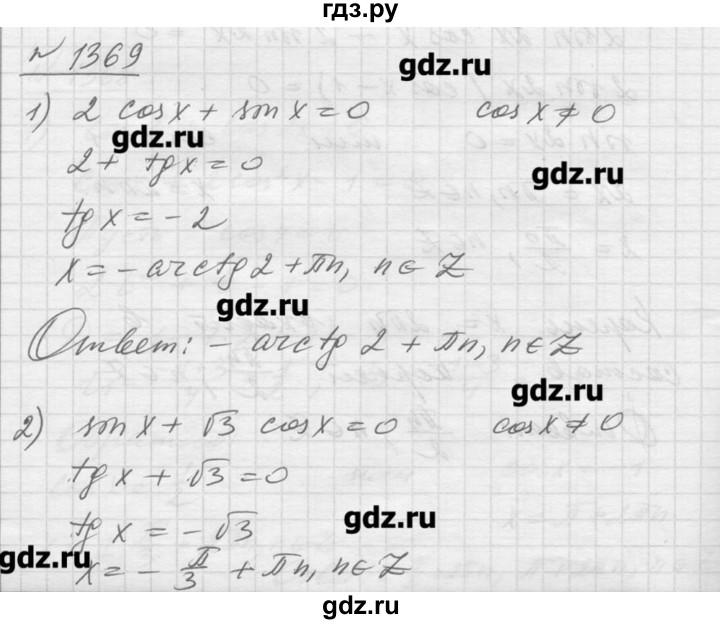 гдз.ру
№ 1369
gdz.ru
1) 2 cosx + sin x = 0 cos x ≠ 0
gdz.ru
2 + tg x = 0
gdz.ru
tg x = - 2
x = - arctg 2 + πn, n ∈ Z
gdz.ru
Ответ: - arctg 2 + πn, n ∈ Z
gdz.ru
2) sin x + √3 cos x = 0 cos x ≠ 0
tg x + √3 = 0
tg x = - √3
gdz.ru
gdz.ru
x = - π/3 + πn, n ∈ Z
gdz.ru